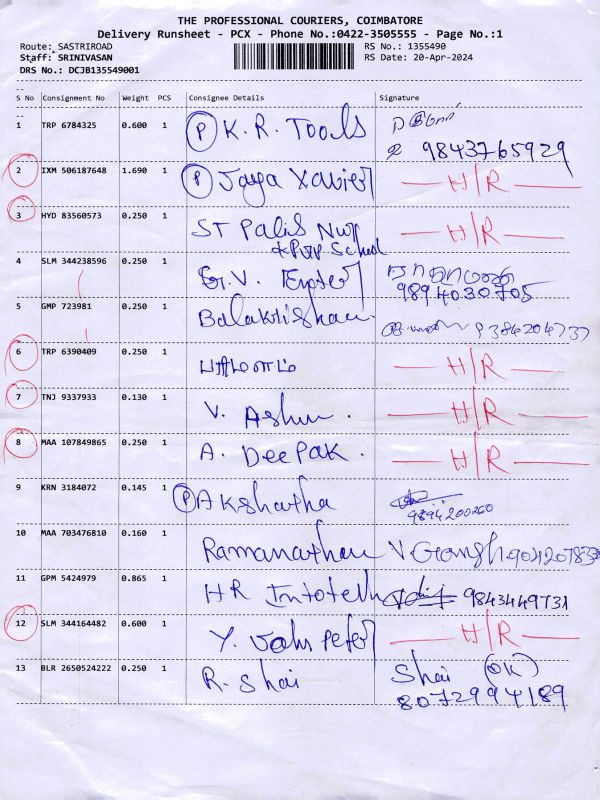 THE PROFESSIONAL COURIERS, COIMBATORE
Delivery Runsheet - PCX - Phone No.:0422-3505555 - Page No.:1
Route: SASTRIROAD RS No.: 1355490
Staff: SRINIVASAN RS Date: 20-Apr-2024
DRS No.: DCJB135549001
S No Consignment No Weight PCS Consignee Details Signature
1 TRP 6784325 0.600 1 P K.R. Tools
9843765929
2 IXM 506187648 1.690 1 P Jaya Xavier H/R
3 HYD 83560573 0.250 1 ST Palls Nur H/R
& Pup School
4 SLM 344238596 0.250 1 G.V.
9894030705
5 GMP 723981 0.250 1 Balakrishan 9384204737
6 TRP 6390409 0.250 1 H/R
7 TNJ 9337933 0.130 1 V. Ashu. H/R
8 MAA 107849865 0.250 1 A. DeePak. H/R
9 KRN 3184072 0.145 1 P Akshatha
9894200260
10 MAA 703476810 0.160 1 Ramanathan
11 GPM 5424979 0.865 1 HR Infotech 9843449731
12 SLM 344164482 0.600 1 Y. John Peter H/R
13 BLR 2650524222 0.250 1 R. Shai Shai (OK)
8072994189